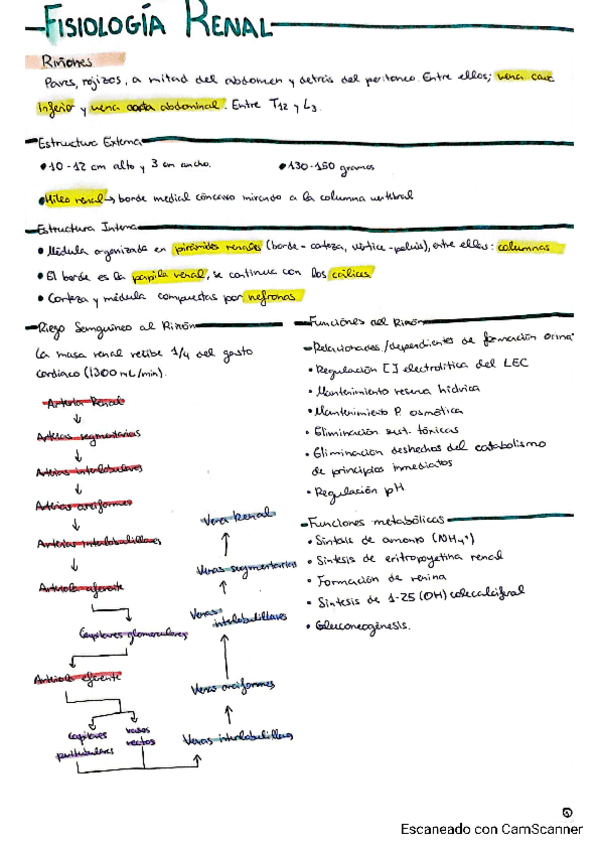 FISIOLOGÍA RENAL
Riñones
Pares, rojizos, a mitad del abdomen y detrás del peritoneo. Entre ellos; vena cava
inferior y vena aorta abdominal. Entre T12 y L3.
Estructura Externa
• 10-12 cm alto y 3 cm ancho.
• 130-150 gramos
• Hileo renal → borde medial cóncavo mirando a la columna vertebral
Estructura Interna
• Médula organizada en pirámides renales (borde-corteza, vértice-pelvis), entre ellas: columnas
• El borde es la papila renal, se continua con los cálices
• Corteza y médula compuestas por nefronas
Riego Sanguíneo al Riñón
La masa renal recibe 1/4 del gasto
cardiaco (1300 mL/min).
Arteria Renal
↓
Arterias segmentarias
↓
Arterias interlobulares
↓
Arterias arciformes
↓
Arterias interlobulillares
↓
Arteriola aferente
Capilares glomerulares
Arteriola eferente
Capilares peritubulares
vasos rectos
Venas interlobulillares
↑
Venas arciformes
↑
Venas interlobulillares
↑
Venas segmentarias
↑
Vena Renal
Funciones del Riñón
Relacionadas/dependientes de formación orina
• Regulación [] electrolítica del LEC
• Mantenimiento reserva hídrica
• Mantenimiento P. osmótica
• Eliminación sust. tóxicas
• Eliminación deshechos del catabolismo
de principios inmediatos
• Regulación pH
Funciones metabólicas
• Síntesis de amonio (NH4+)
• Síntesis de eritropoyetina renal
• Formación de renina
• Síntesis de 1-25 (OH) colecalciferol
• Gluconeogénesis.
Escaneado con CamScanner